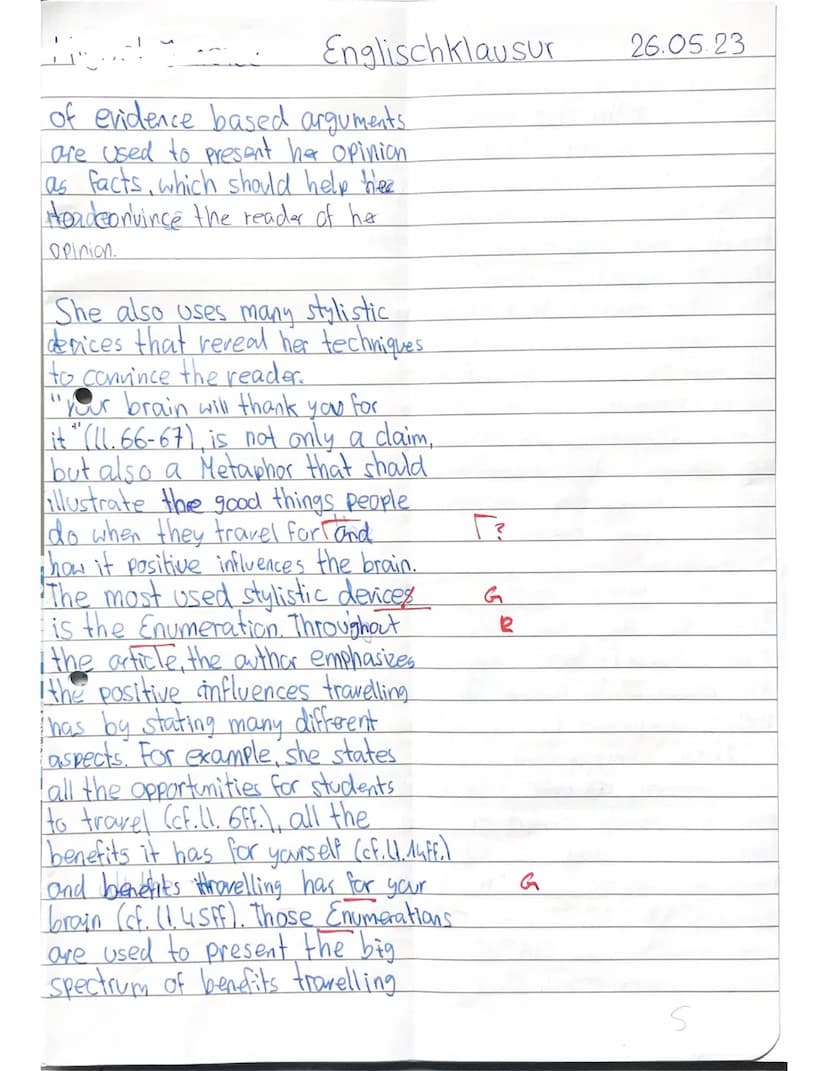 Englischklausur 26.05.23
of evidence based arguments
are used to present her opinion
as facts, which should help
convince the reader of her
opinion.
She also uses many stylistic
devices that reveal her techniques
to convince the reader.
"Your brain will thank you for
it" (ll. 66-67), is not only a claim,
but also a Metaphor that should
illustrate the good things people
do when they travel for and Γ?
how it positive influences the brain.
The most used stylistic devices G
is the Enumeration. Throughout R
the article, the author emphasizes
the positive influences travelling
has by stating many different
aspects. For example, she states
all the opportunities for students
to travel (cf. ll. 6ff.), all the
benefits it has for yourself (cf. ll. 14ff.)
and benefits travelling has for your G
brain (cf. ll. 45ff). Those Enumerations
are used to present the big
spectrum of benefits travelling
5